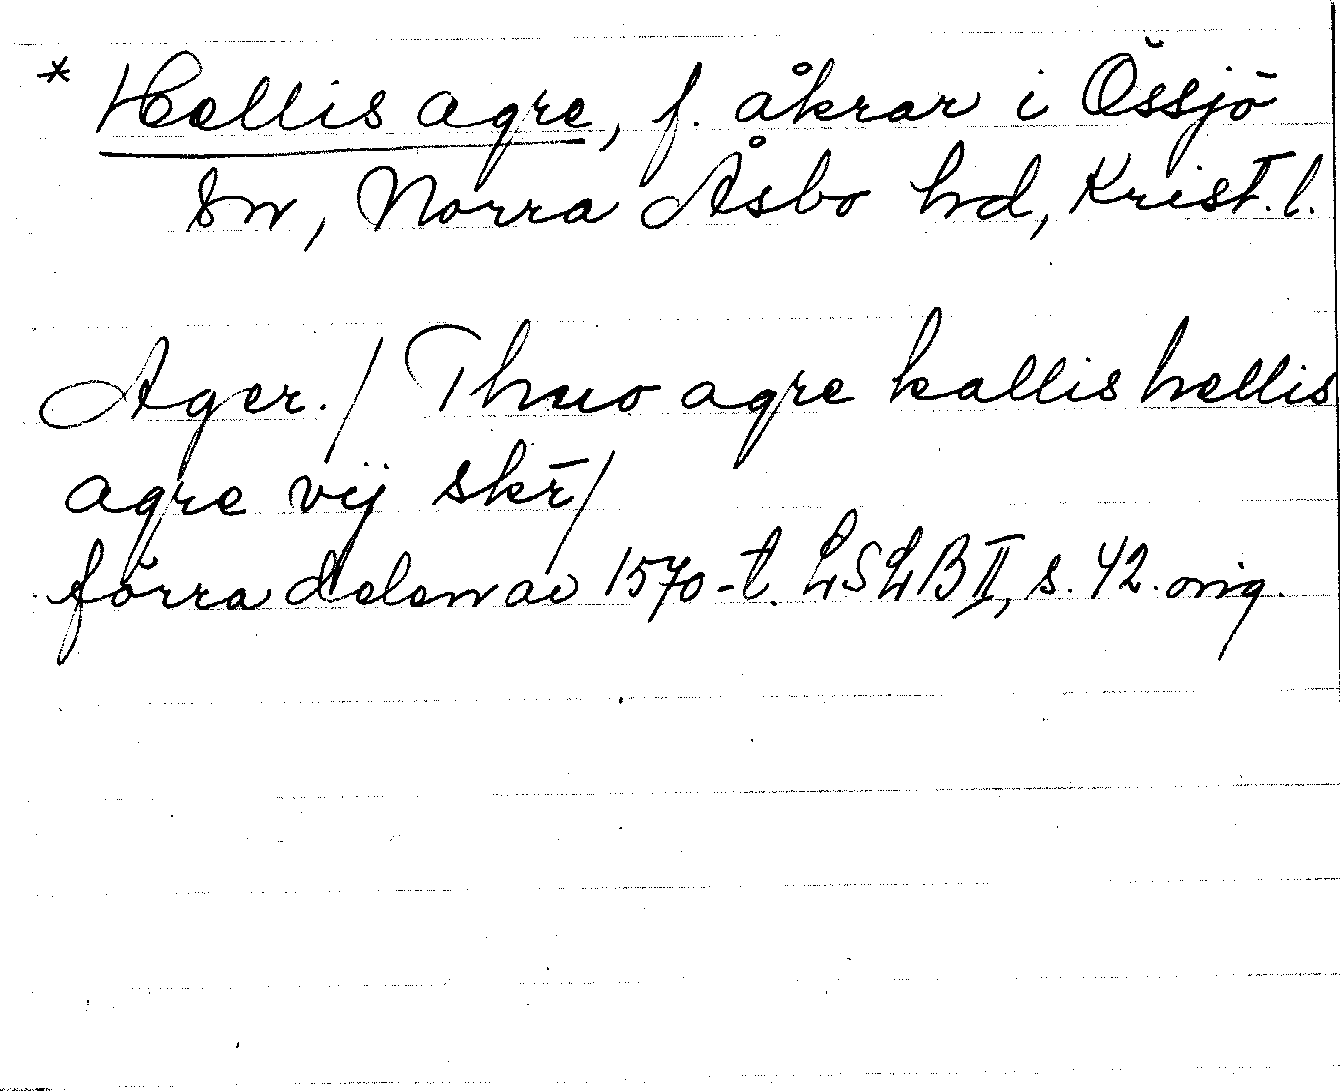 * Hellis agre, f. åkrar i Össjö
sn, Norra Åsbo hd, Krist. l.
Ager./ Thuo agre kallis hellis
agre vij skr/
förra delen av 1570-t. LSLB II, s. 42. orig.